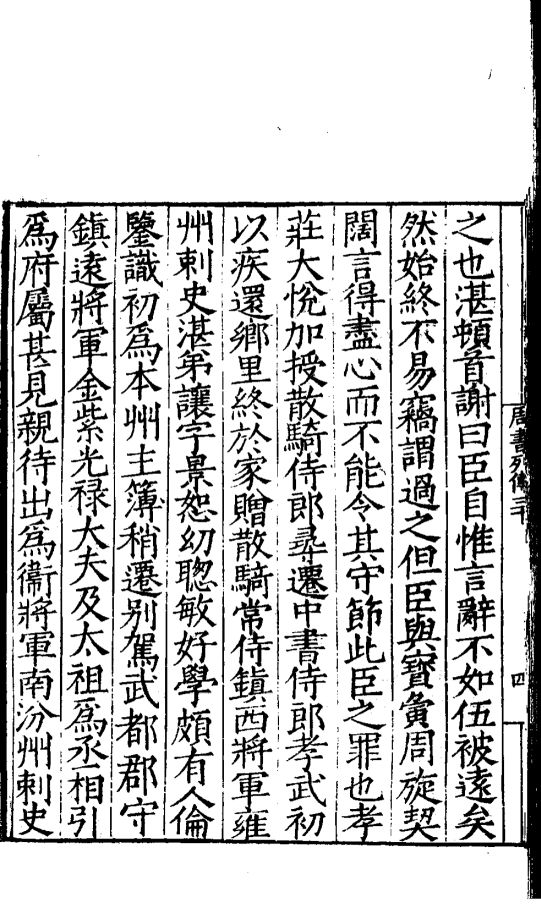 之也湛頓首謝曰臣自惟言辭不如伍被遠矣
然始終不易竊謂過之但臣與寶夤周旋契
闊言得盡心而不能令其守節此臣之罪也孝
莊大悅加授散騎侍郎尋遷中書侍郎孝武初
以疾還鄉里終於家贈散騎常侍鎮西將軍雍
州刺史湛弟讓字景恕幼聰敏好學頗有人倫
鑒識初爲本州主簿稍遷别駕武都郡守
鎮遠將軍金紫光禄大夫及太祖爲丞相引
爲府屬甚見親待出爲衞將軍南汾州刺史
周書列傳三十
四